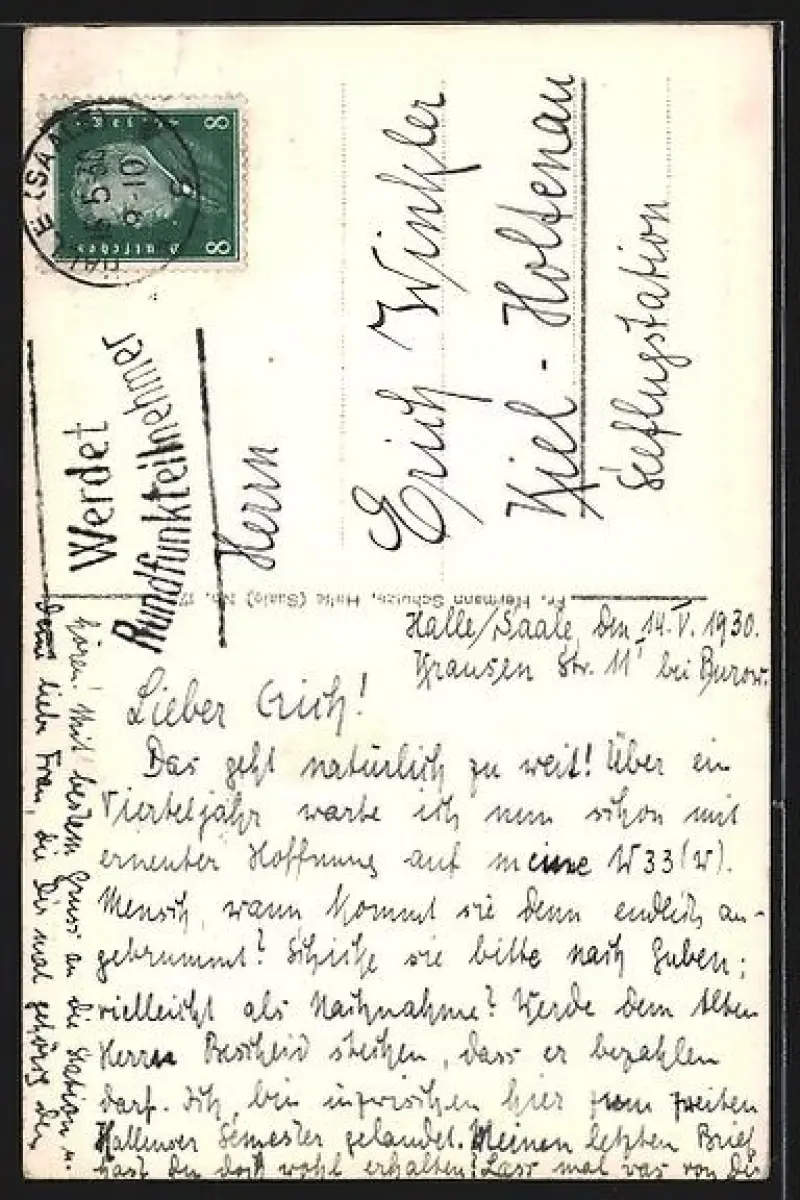 HALLE (SAALE)
5.30
9-10
8
8
Deutsches
Werdet
Rundfunkteilnehmer
Herrn
Erich Winkler
Kiel-Holtenau
Seeflugstation
Fr. Hermann Schulze, Halle (Saale) No.
Halle/Saale, den 14.V.1930.
Krausen Str. 11 I bei Burow.
Lieber Erich!
Das geht natürlich zu weit! Über ein
Vierteljahr warte ich nun schon mit
erneuter Hoffnung auf meine W33(W).
Mensch, wann kommt sie denn endlich an-
gebrummt? Schicke sie bitte nach Guben;
vielleicht als Nachnahme? Werde dem Alten
Herrn Bescheid stechen, dass er bezahlen
darf. Ich bin inzwischen hier zum zweiten
Hallenser Semester gelandet. Meinen letzten Brief
hast Du doch wohl erhalten! Lass mal was von Dir
hören! Mit bestem Gruss an die Station u.
Deine liebe Frau, die Dir mal gehörig den